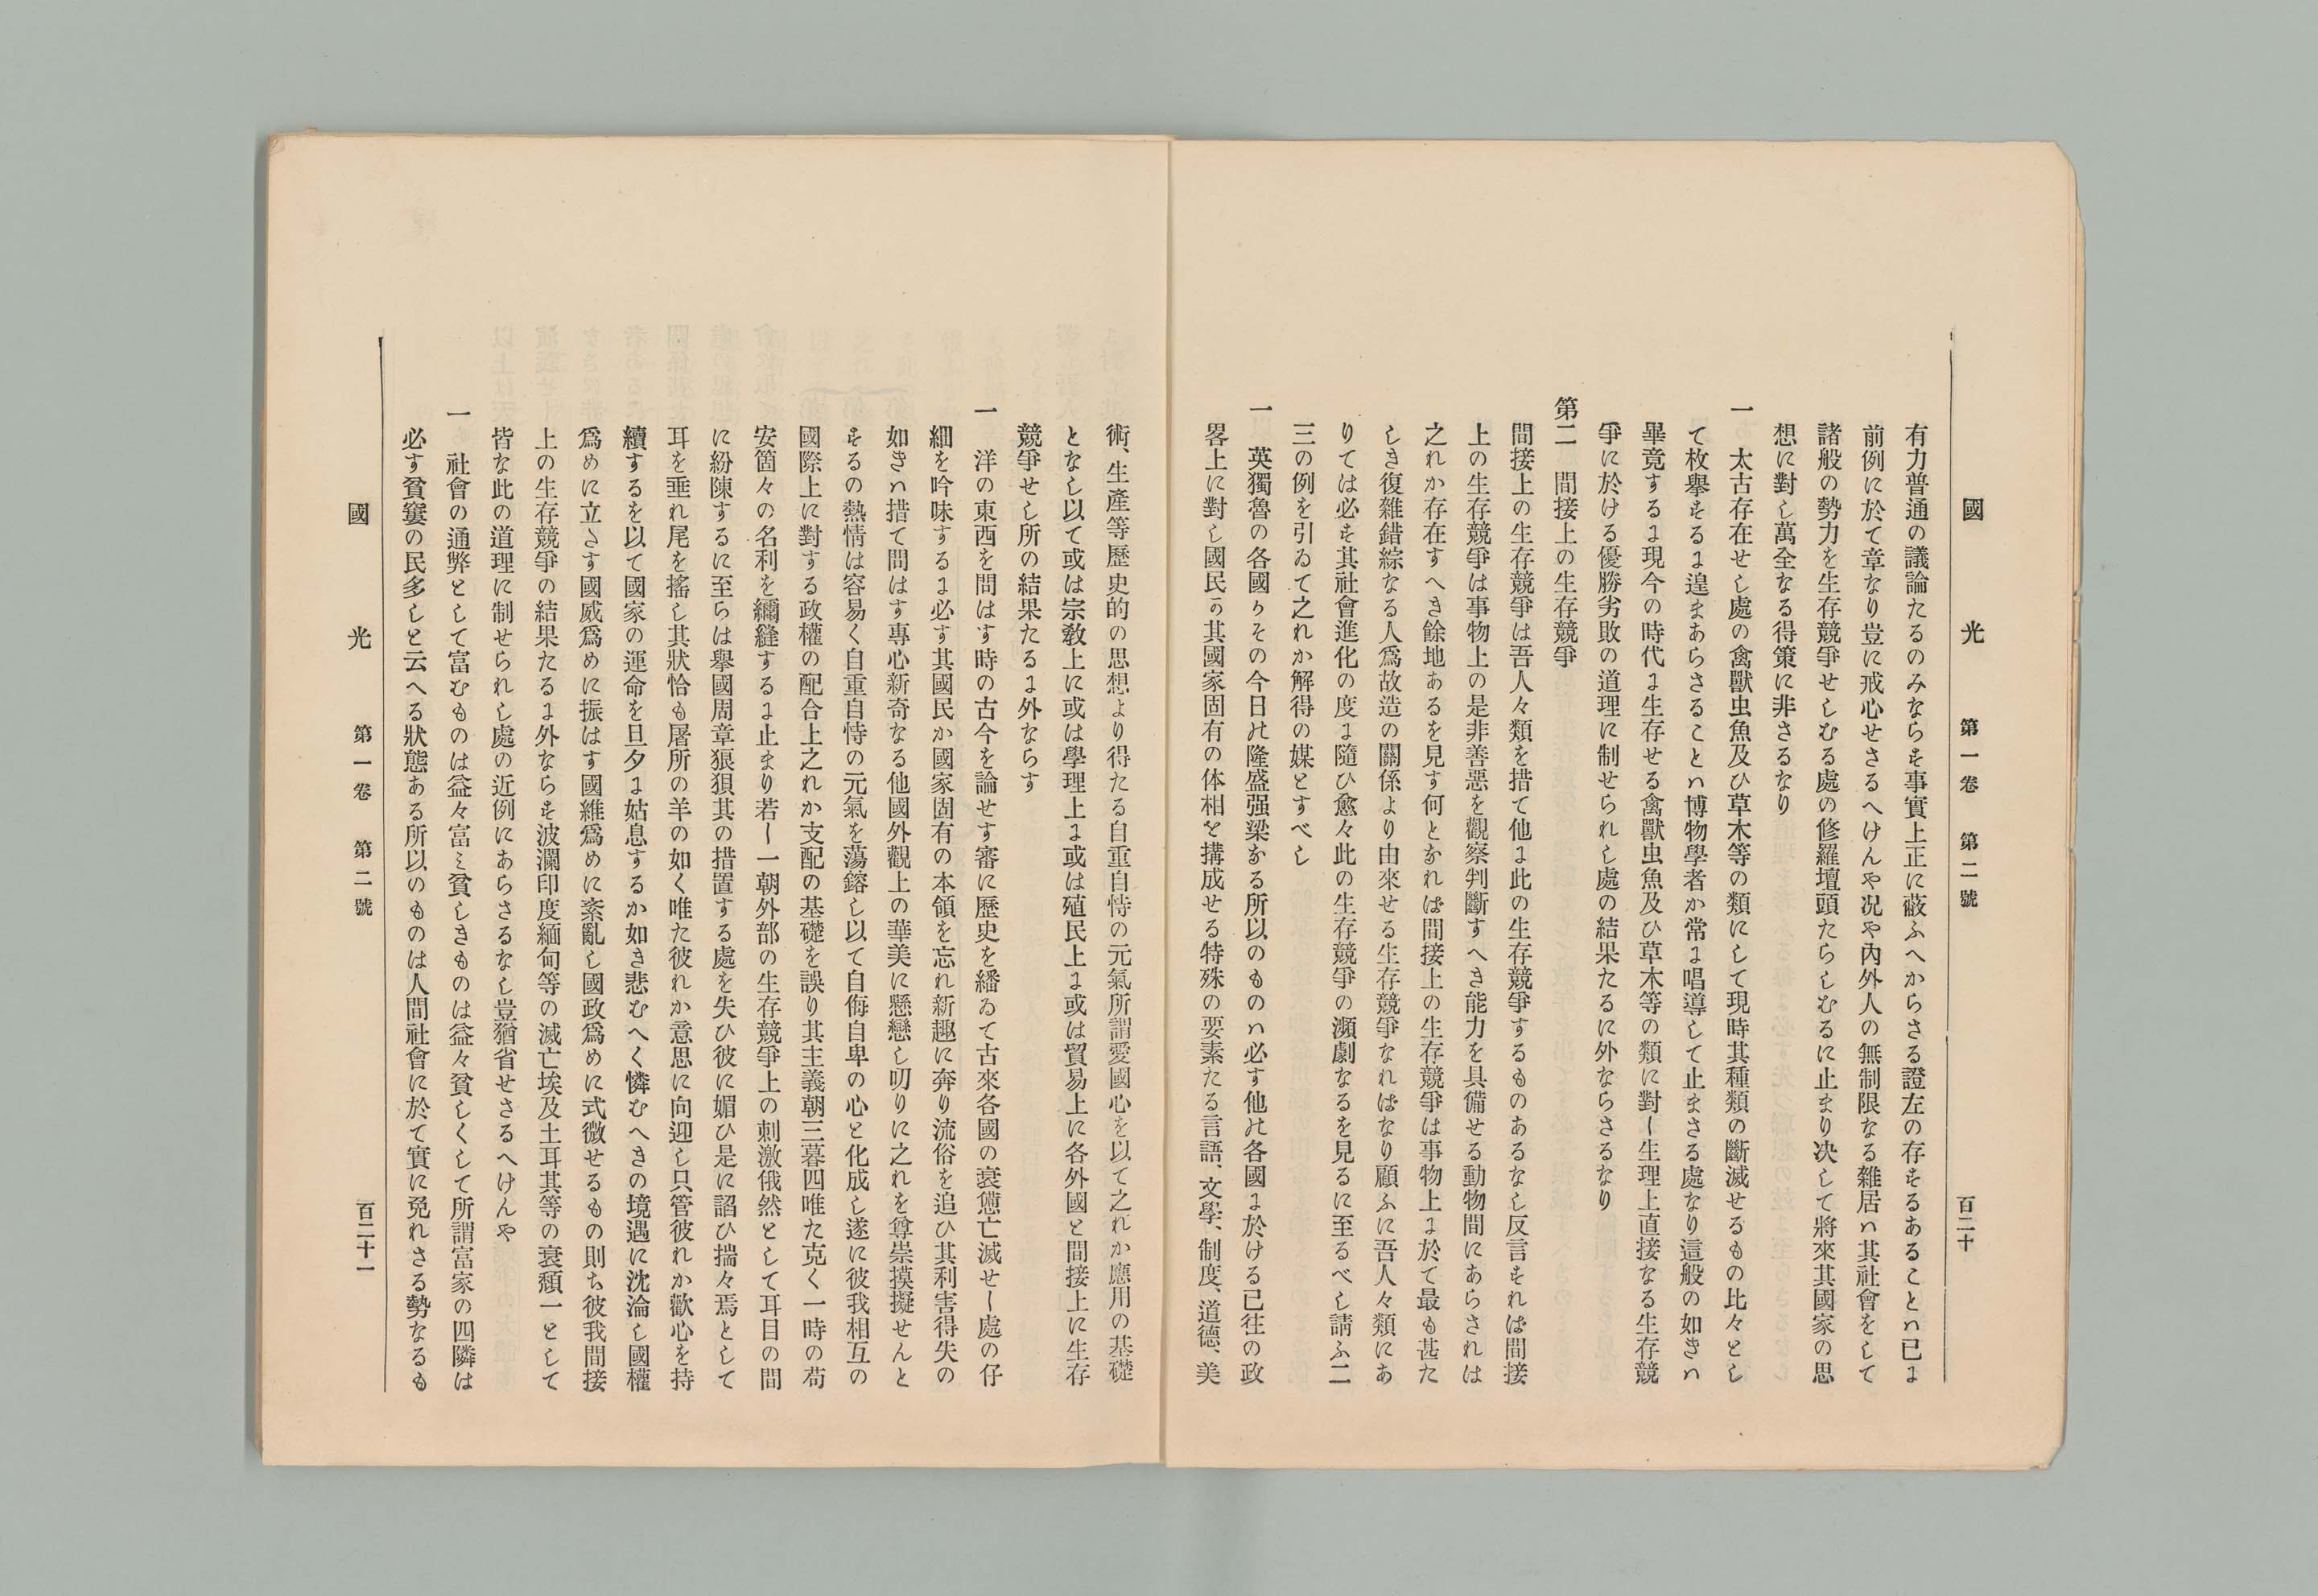 國光 第一卷 第二號 百二十
有力普通の議論たるのみならす事實上正に蔽ふへからさる證左の存するあることハ已に
前例に於て章なり豈に戒心せさるへけんや况や內外人の無制限なる雜居ハ其社會をして
諸般の勢力を生存競爭せしむる處の修羅壇頭たらしむるに止まり决して將來其國家の思
想に對し萬全なる得策に非さるなり
一 太古存在せし處の禽獸虫魚及ひ草木等の類にして現時其種類の斷滅せるもの比々とし
て枚擧するに遑まあらさることハ博物學者か常に唱導して止まさる處なり這般の如きハ
畢竟するに現今の時代に生存せる禽獸虫魚及ひ草木等の類に對し生理上直接なる生存競
爭に於ける優勝劣敗の道理に制せられし處の結果たるに外ならさるなり
第二 間接上の生存競爭
間接上の生存競爭は吾人々類を措て他に此の生存競爭するものあるなし反言すれば間接
上の生存競爭は事物上の是非善惡を觀察判斷すへき能力を具備せる動物間にあらされは
之れか存在すへき餘地あるを見す何となれば間接上の生存競爭は事物上に於て最も甚た
しき復雜錯綜なる人爲故造の關係より由來せる生存競爭なればなり顧ふに吾人々類にあ
りては必す其社會進化の度に隨ひ愈々此の生存競爭の瀕劇なるを見るに至るべし請ふ二
三の例を引ゐて之れか解得の媒とすべし
一 英獨魯の各國かその今日の隆盛强梁なる所以のものハ必す他の各國に於ける已往の政
畧上に對し國民の其國家固有の体相を搆成せる特殊の要素たる言語、文學、制度、道德、美
術、生產等歷史的の思想より得たる自重自恃の元氣所謂愛國心を以て之れか應用の基礎
となし以て或は宗敎上に或は學理上に或は殖民上に或は貿易上に各外國と間接上に生存
競爭せし所の結果たるに外ならす
一 洋の東西を問はす時の古今を論せす審に歷史を繙ゐて古來各國の衰憊亡滅せし處の仔
細を吟味するに必す其國民か國家固有の本領を忘れ新趣に奔り流俗を追ひ其利害得失の
如きハ措て問はす專心新奇なる他國外觀上の華美に懸戀し叨りに之れを尊崇摸擬せんと
するの熱情は容易く自重自恃の元氣を蕩鎔し以て自侮自卑の心と化成し遂に彼我相互の
國際上に對する政權の配合上之れか支配の基礎を誤り其主義朝三暮四唯た克く一時の苟
安箇々の名利を繃縫するに止まり若し一朝外部の生存競爭上の刺激俄然として耳目の間
に紛陳するに至らは擧國周章狼狽其の措置する處を失ひ彼に媚ひ是に諂ひ揣々焉として
耳を垂れ尾を搖し其狀恰も屠所の羊の如く唯た彼れか意思に向迎し只管彼れか歡心を持
續するを以て國家の運命を旦夕に姑息するか如き悲むへく憐むへきの境遇に沈淪し國權
爲めに立さす國威爲めに振はす國維爲めに紊亂し國政爲めに式微せるもの則ち彼我間接
上の生存競爭の結果たるに外ならす波瀾印度緬甸等の滅亡埃及土耳其等の衰頽一として
皆な此の道理に制せられし處の近例にあらさるなし豈猶省せさるへけんや
一 社會の通弊として富むものは益々富ミ貧しきものは益々貧しくして所謂富家の四隣は
必す貧窶の民多しと云へる狀態ある所以のものは人間社會に於て實に免れさる勢なるも
國光 第一卷 第二號 百二十一